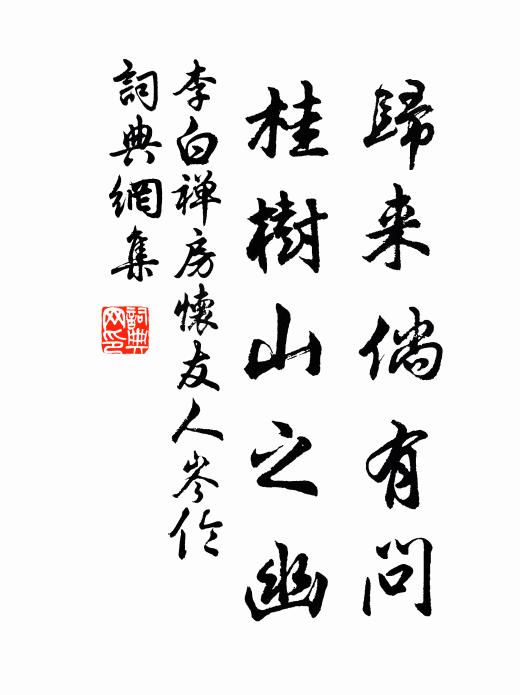 歸来倘有問
桂樹山之幽
李白禅房懷友人岑伦
詞典網集
詞典
网印